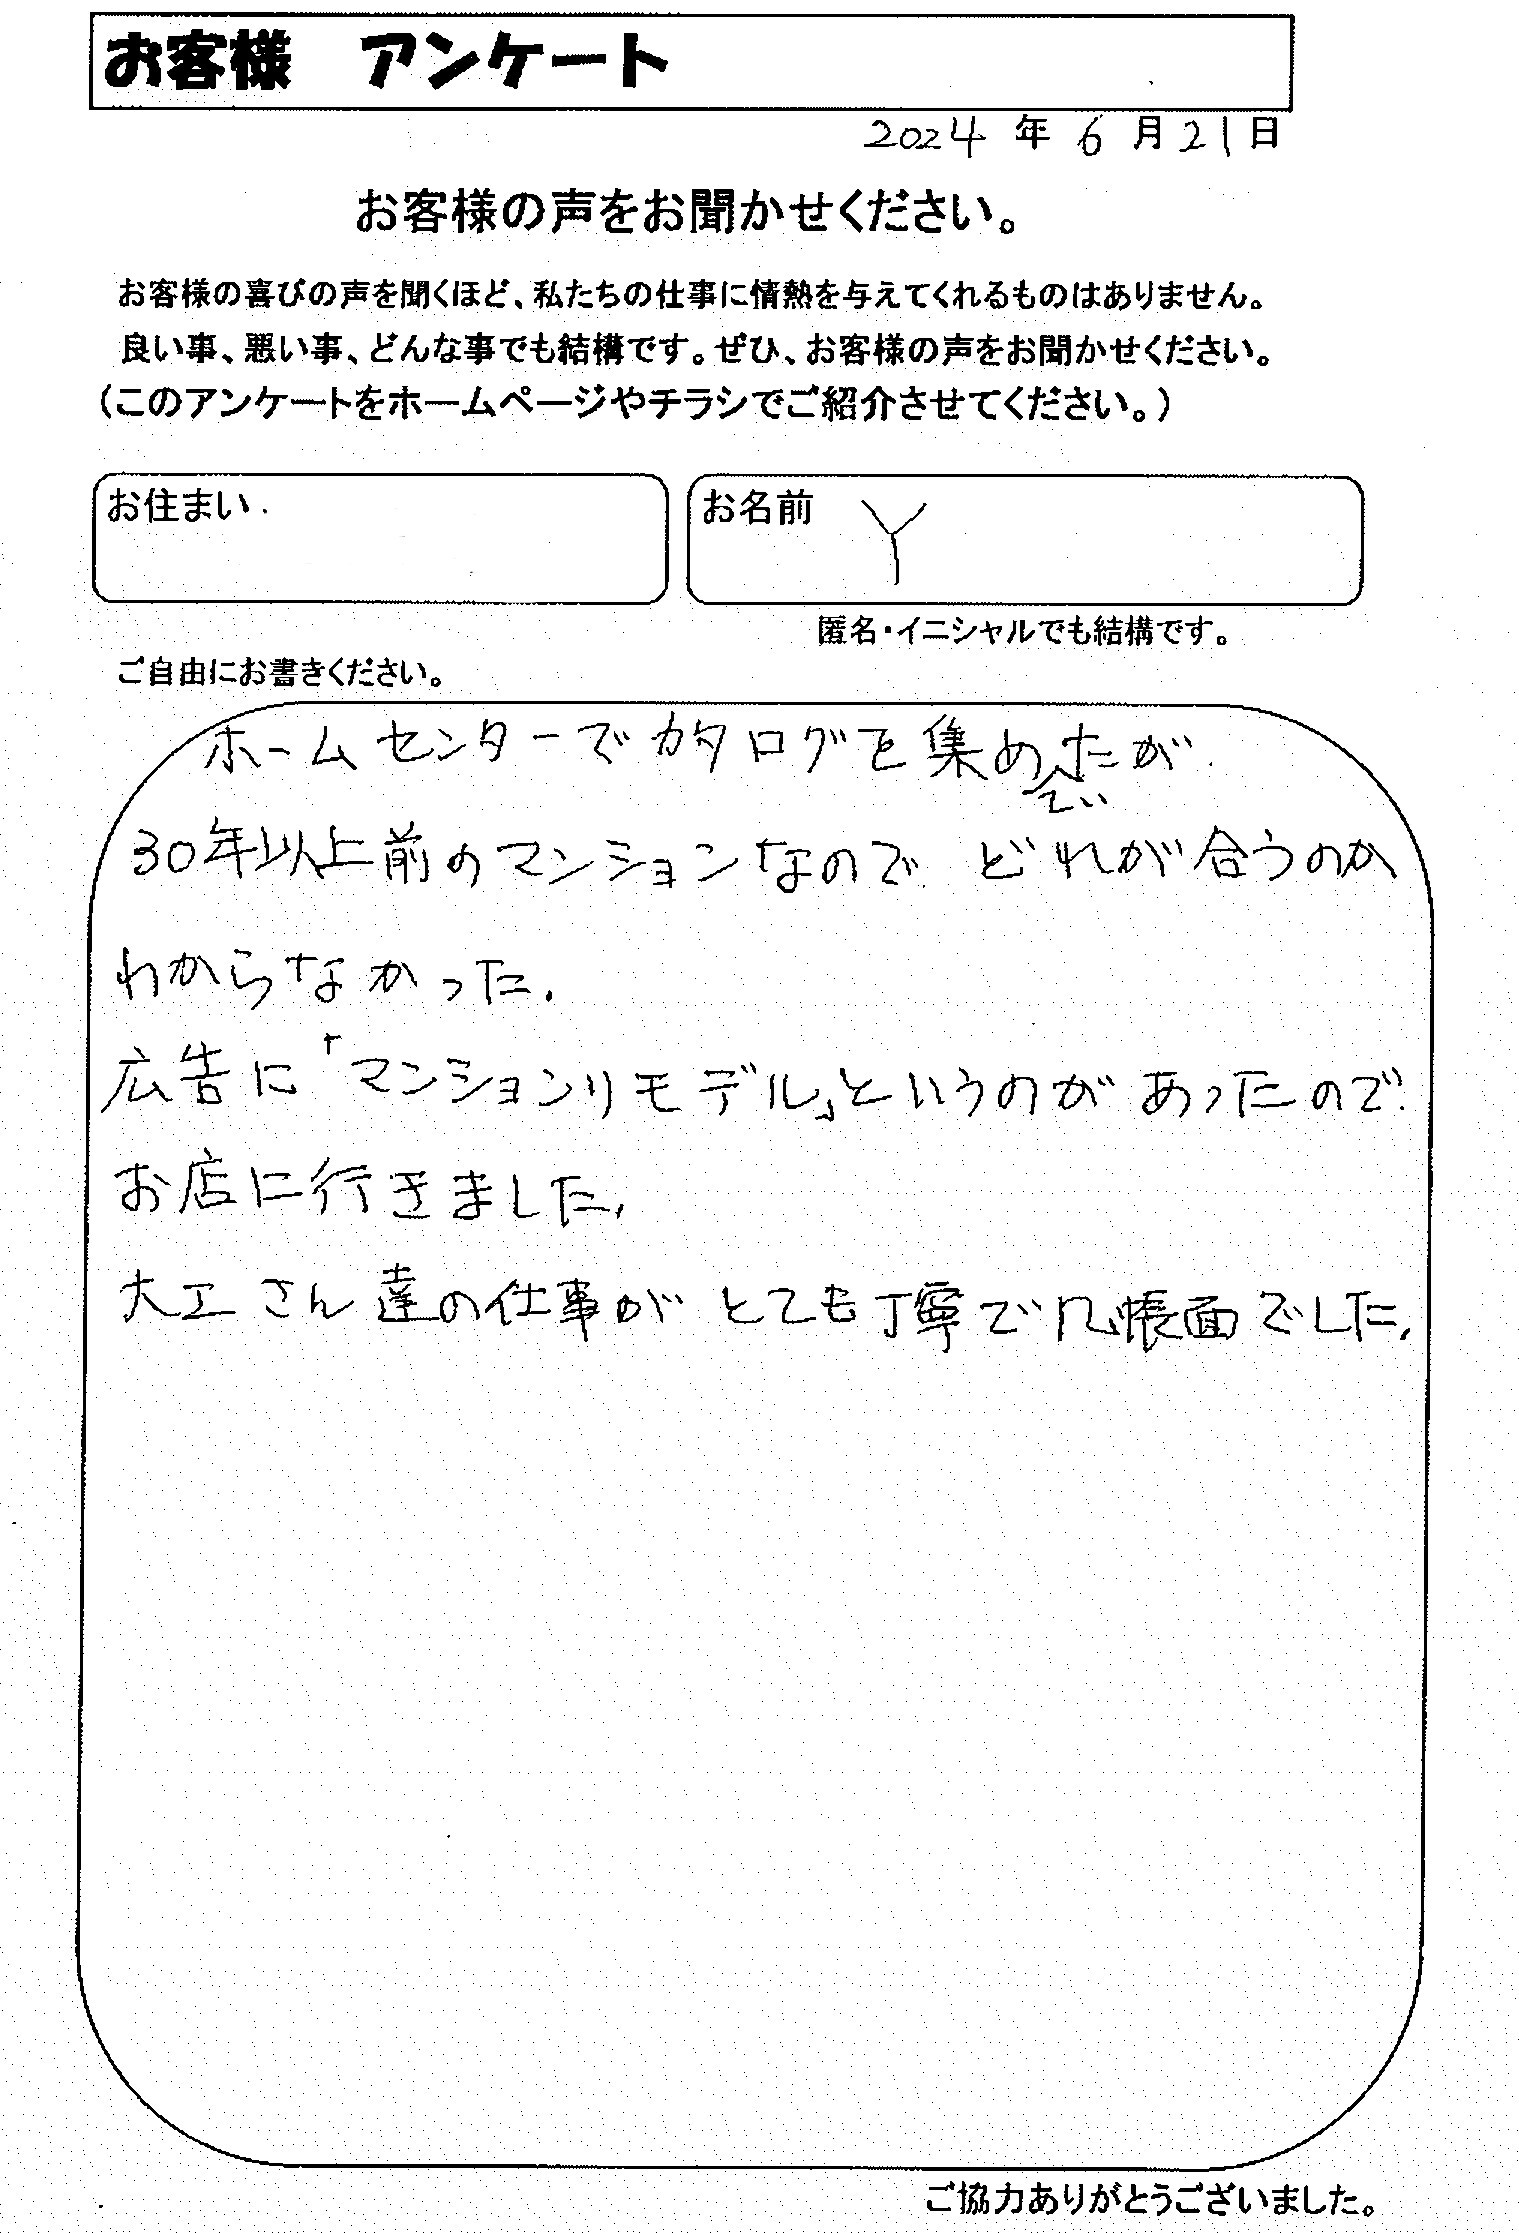 お客様 アンケート
2024 年 6 月 21 日
お客様の声をお聞かせください。
お客様の喜びの声を聞くほど、私たちの仕事に情熱を与えてくれるものはありません。
良い事、悪い事、どんな事でも結構です。ぜひ、お客様の声をお聞かせください。
(このアンケートをホームページやチラシでご紹介させてください。)
お住まい
お名前 Y
匿名・イニシャルでも結構です。
ご自由にお書きください。
ホームセンターでカタログを集めていたが
30年以上前のマンションなので どれが合うのか
わからなかった.
広告に「マンションリモデル」というのがあったので
お店に行きました.
大工さん達の仕事が とても丁寧で几帳面でした.
ご協力ありがとうございました。